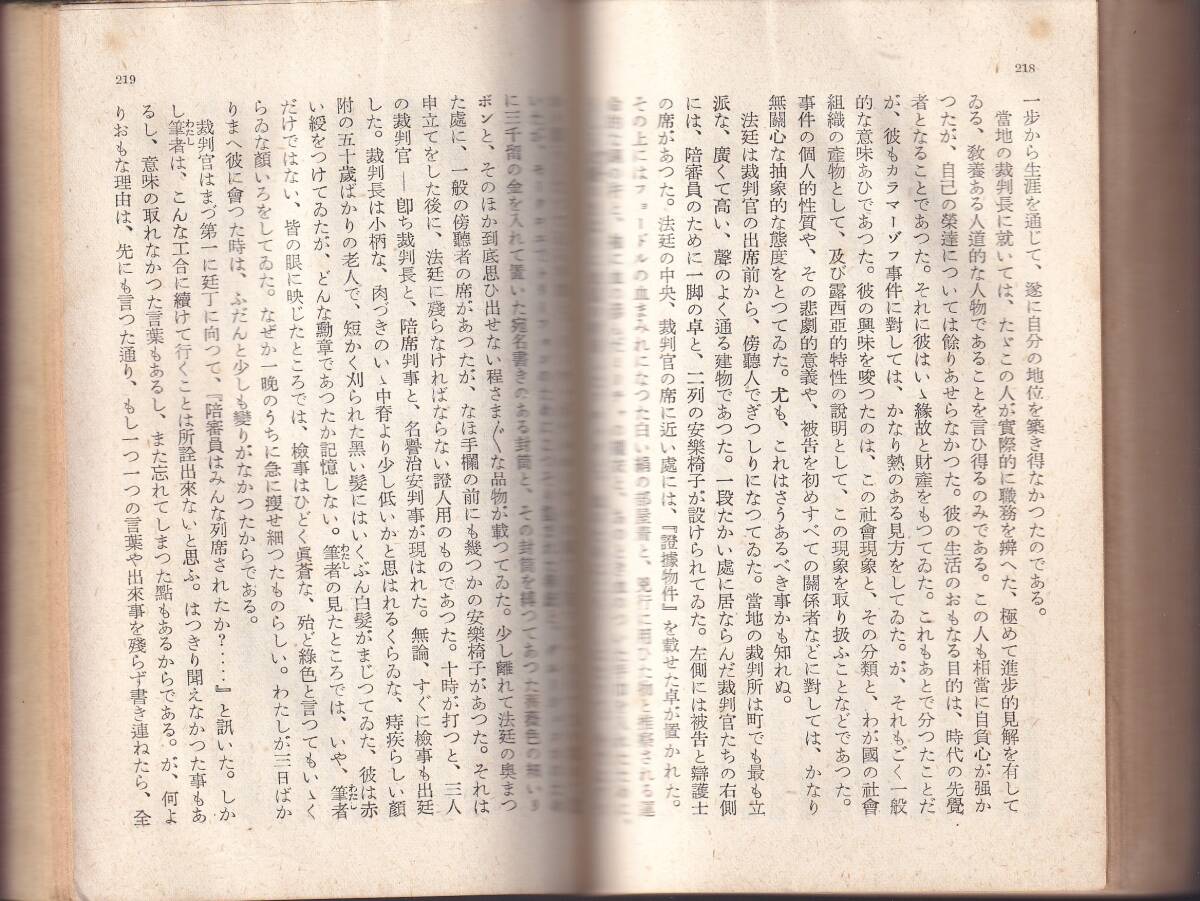 218
一步から生涯を通じて、遂に自分の地位を築き得なかつたのである。
當地の裁判長に就いては、たゞこの人が實際的に職務を辨へた、極めて進步的見解を有して
ゐる、敎養ある人道的な人物であることを言ひ得るのみである。この人も相當に自負心が强か
つたが、自己の榮達については餘りあせらなかつた。彼の生活のおもなる目的は、時代の先覺
者となることであつた。それに彼はいゝ緣故と財產をもつてゐた。これもあとで分つたことだ
が、彼もカラマーゾフ事件に對しては、かなり熱のある見方をしてゐた。が、それもごく一般
的な意味あひであつた。彼の興味を唆つたのは、この社會現象と、その分類と、わが國の社會
組織の產物として、及び露西亞的特性の說明として、この現象を取り扱ふことなどであつた。
事件の個人的性質や、その悲劇的意義や、被告を初めすべての關係者などに對しては、かなり
無關心な抽象的な態度をとつてゐた。尤も、これはさうあるべき事かも知れぬ。
法廷は裁判官の出席前から、傍聽人でぎつしりになつてゐた。當地の裁判所は町でも最も立
派な、廣くて高い、聲のよく通る建物であつた。一段たかい處に居ならんだ裁判官たちの右側
には、陪審員のために一脚の卓と、二列の安樂椅子が設けられてゐた。左側には被吿と辯護士
の席があつた。法廷の中央、裁判官の席に近い處には、『證據物件』を載せた卓が置かれた。
その上にはフョードルの血まみれになつた白い絹の部屋着と、兇行に用ひた
219
に三千留の金を入れて置いた宛名書きのある封筒と、その封筒を縛つてあつた薔薇色の細いリ
ボンと、そのほか到底思ひ出せない程さまざまな品物が載つてゐた。少し離れて法廷の奧まつ
た處に、一般の傍聽者の席があつたが、なほ手欄の前にも幾つかの安樂椅子があつた。それは
申立てをした後に、法廷に殘らなければならない證人用のものであつた。十時が打つと、三人
の裁判官――卽ち裁判長と、陪席判事と、名譽治安判事が現はれた。無論、すぐに檢事も出廷
した。裁判長は小柄な、肉づきのいゝ中脊より少し低いかと思はれるくらゐな、痔疾らしい顏
附の五十歲ばかりの老人で、短かく刈られた黑い髮にはいくぶん白髮がまじつてゐた、彼は赤
い綬をつけてゐたが、どんな勳章であつたか記憶しない。筆者の見たところでは、いや、筆者
だけではない、皆の眼に映じたところでは、檢事はひどく眞蒼な、殆ど綠色と言つてもいゝく
らゐな顏いろをしてゐた。なぜか一晚のうちに急に瘦せ細つたものらしい。わたしが三日ばか
りまへ彼に會つた時は、ふだんと少しも變りがなかつたからである。
裁判官はまづ第一に廷丁に向つて、『陪審員はみんな列席されたか?‥‥』と訊いた。しか
し筆者は、こんな工合に續けて行くことは所詮出來ないと思ふ。はつきり聞えなかつた事もあ
るし、意味の取れなかつた言葉もあるし、また忘れてしまつた點もあるからである。が、何よ
りおもな理由は、先にも言つた通り、もし一つ一つの言葉や出來事を殘らず書き連ねたら、全